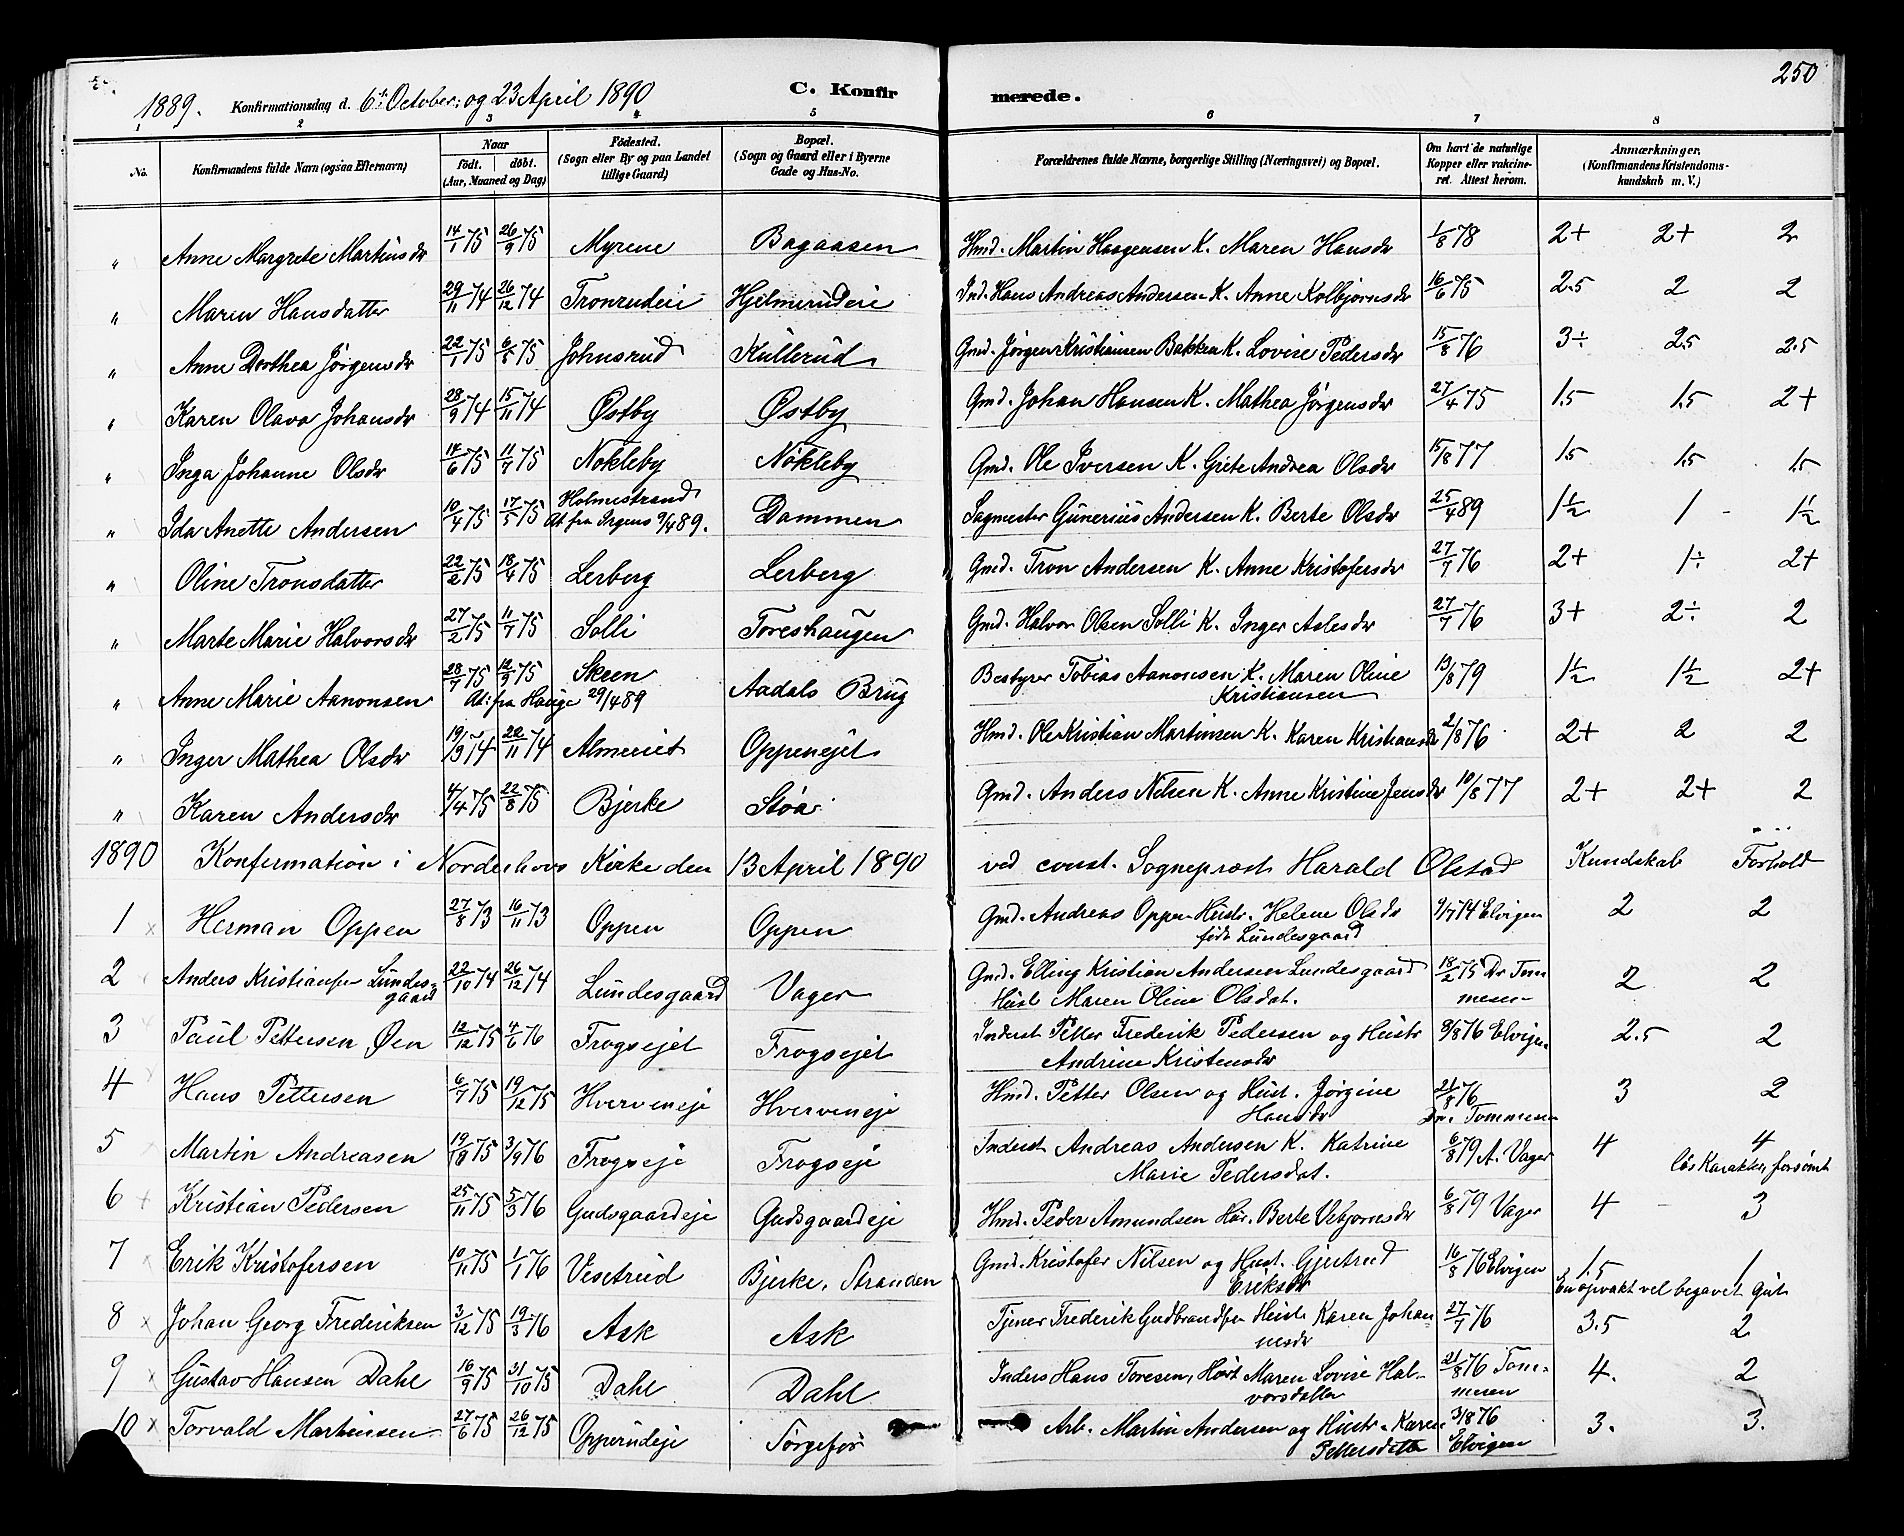 250
1889. Konfirmationsdag d. 6te October, og 23 April 1890 C. Konfirmerede.
1 2 3 4 5 6 7 8
No. Konfirmandens fulde Navn (ogsaa Efternavn) Naar födt. döbt. (Aar, Maaned og Dag) Födested. (Sogn eller By og paa Landet tillige Gaard) Bopæl. (Sogn og Gaard eller i Byerne Gade og Hus-No. Forældrenes fulde Navne, borgerlige Stilling (Næringsvei) og Bopæl. Om havt de naturlige Kopper eller vakcineret. Attest herom. Anmærkninger, (Konfirmandens Kristendomskundskab m. V.)
" Anne Margrete Martinsdr 14/1 75 26/9 75 Myrene Bagaasen Hmd. Martin Haagensen K. Maren Hansdr 1/8 78 2+ 2+ 2
" Maren Hansdatter 29/11 74 26/12 74 Tronrudeie Hjelmerudeie Ind. Hans Andreas Andersen K. Anne Kolbjørnsdr 16/6 75 2.5 2 2
" Anne Dorthea Jörgensdr 22/1 75 6/5 75 Johnsrud Kullerud Gmd. Jörgen Kristiansen Bakken K. Lovise Pedersdr 15/8 76 3÷ 2.5 2.5
" Karen Olava Johansdr 28/9 74 15/11 74 Østby Østby Gmd. Johan Hansen K. Mathea Jörgensdr 27/4 75 1.5 1.5 2+
" Inga Johanne Olsdr 14/6 75 11/7 75 Nökleby Nökleby Gmd. Ole Iversen K. Grete Andrea Olsdr 15/8 77 1.5 1.5 1.5
" Ida Anette Andersen 10/4 75 17/5 75 Holmestrand Dammen Sagmester Gunerius Andersen K. Berte Olsdr 25/4 89 1½ 1 - 1½
At. fra Sogns 9/4 89.
" Oline Tronsdatter 22/2 75 18/4 75 Lerberg Lerberg Gmd. Tron Andersen K. Anne Kristofersdr 27/7 76 2+ 1÷ 2+
" Marte Marie Halvorsdr 27/2 75 11/7 75 Solli Toreshaugen Gmd. Halvor Olsen Solli K. Inger Aslesdr 27/7 76 3+ 2÷ 2
" Anne Marie Aanonsen 28/7 75 12/9 75 Skeen Aadals Brug Bestyrer Tobias Aanonsen K. Maren Oline 13/8 79 1½ 1½ 2+
At. fra Hauge 29/4 89 Kristiansen
" Inger Mathea Olsdr 19/9 74 22/11 74 Almeriet Oppenejet Hmd. Ole Kristian Martinsen K. Karen Kristiansdr 2/8 76 2+ 2 2
" Karen Andersdr 4/4 75 22/8 75 Bjerke Støa Gmd. Anders Nilsen K. Anne Kristine Jensdr 10/8 77 2+ 2+ 2
1890 Konfirmation i Norderhovs Kirke den 13 April 1890 ved const. Sogneprest Harald Ølstad Kundskab Forhold
1 x Herman Oppen 27/8 73 16/11 73 Oppen Oppen Gmd. Andreas Oppen Hustr. Helene Olsdr 9/7 74 Elvigen 2 2
föde Lundesgaard
2 Anders Kristiansen Lundesgaard 22/10 74 26/12 74 Lundesgaard Vager Gmd. Elling Kristian Andersen Lundesgaard 18/2 75 Dr Tommesen 2 2
Hust Maren Oline Olsdat.
3 Paul Pettersen Øen 12/12 75 4/6 76 Frogsejet Frogsejet Inderst Petter Frederik Pedersen og Hustr 9/8 76 Elvigen 2.5 2
Andrine Kristensdr
4 Hans Pettersen 6/7 75 19/12 75 Hverveneje Hverveneje Hmd. Petter Olsen og Hust. Jørgine 21/8 76 3 2
Hansdr Dr. Tommesen
5 Martin Andreasen 19/10 75 3/9 76 Frogseje Frogseje Inderst Andreas Andersen K. Katrine 6/8 79 A. Vager 4 4
Marie Pedersdat. lös Karakter, forsømt
6 Kristian Pedersen 25/11 75 5/3 76 Gudsgaardeje Gudsgaardeje Hmd. Peder Amundsen Hus. Berte Vebjørnsdr 6/8 79 Vager 4 - 3
7 Erik Kristofersen 10/11 75 1/1 76 Vesetrud Bjerke, Stranden Gmd. Kristofer Nilsen og Hust. Gjertrud 16/8 76 Elvigen 1.5 1
Eriksdr En opvakt vel begavet Gut
8 x Johan Georg Frederiksen 3/12 75 19/3 76 Ask Ask Tjener Frederik Gudbrandsen Hustr Karen Johannesdr 27/7 76 3.5 2
9 x Gustav Hansen Dahl 16/9 75 31/10 75 Dahl Dahl Inders Hans Toresen, Hust Maren Lovise Halvorsdatter 21/8 76 Tommesen 4. 2
10 x Torvald Martinsen 27/6 75 26/12 75 Opperudeje Törgefor Arb. Martin Andersen og Hustr. Karen 31/8 76 3. 3.
Pettersdatter Elvigen